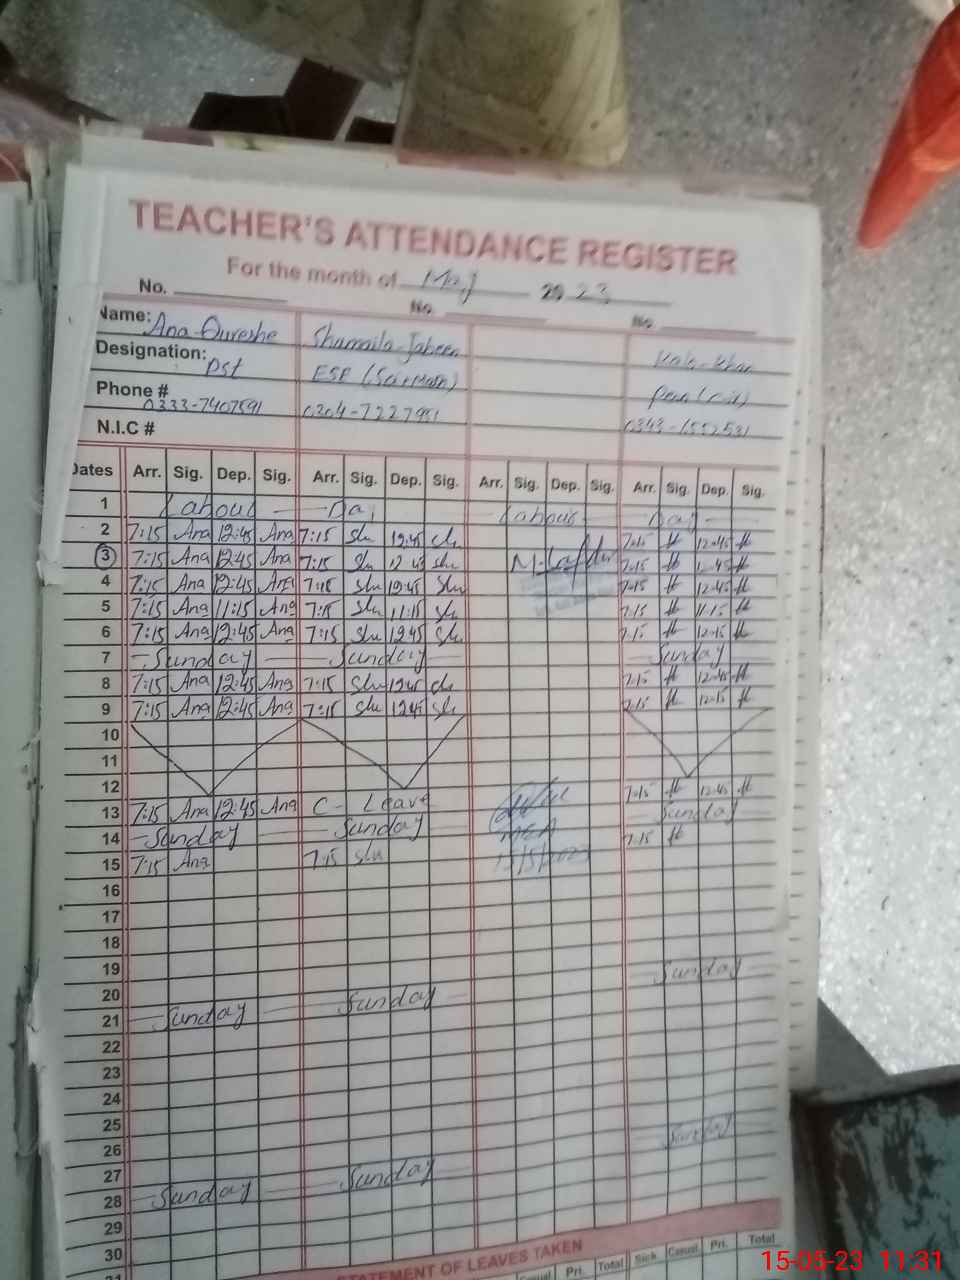 TEACHER'S ATTENDANCE REGISTER
For the month of May 2023
No. No. No.
Name: Ana Qureshe Shumaila Jabeen
Designation: Pst ESE (Sci+Math)
Phone # 0333-7407591 0304-7227981 0343-1552531
N.I.C #
Dates Arr. Sig. Dep. Sig. Arr. Sig. Dep. Sig. Arr. Sig. Dep. Sig. Arr. Sig. Dep. Sig.
1 Labour Da Labour Day
2 7:15 Ana 12:45 Ana 7:15 Shu 12:45 Shu 7:15 12:45
3 7:15 Ana 12:45 Ana 7:15 Shu 12:45 Shu 7:15 12:45
4 7:15 Ana 12:45 Ana 7:15 Shu 12:45 Shu 7:15 12:45
5 7:15 Ana 11:15 Ana 7:15 Shu 11:15 Shu 7:15 11:15
6 7:15 Ana 12:45 Ana 7:15 Shu 12:45 Shu 7:15 12:45
7 Sunday Sunday Sunday
8 7:15 Ana 12:45 Ana 7:15 Shu 12:45 Shu 7:15 12:45
9 7:15 Ana 12:45 Ana 7:15 Shu 12:45 Shu 7:15 12:45
10
11
12
13 7:15 Ana 12:45 Ana C- Leave 7:15 12:45
14 Sunday Sunday MEA Sunday
15 7:15 Ana 7:15 Shu 15/5/2023 7:15
16
17
18
19
20
21 Sunday Sunday Sunday
22
23
24
25
26
27
28 Sunday Sunday Sunday
29
30
31
STATEMENT OF LEAVES TAKEN
Casual Pri. Total Sick Casual Pri. Total
15-05-23 11:31